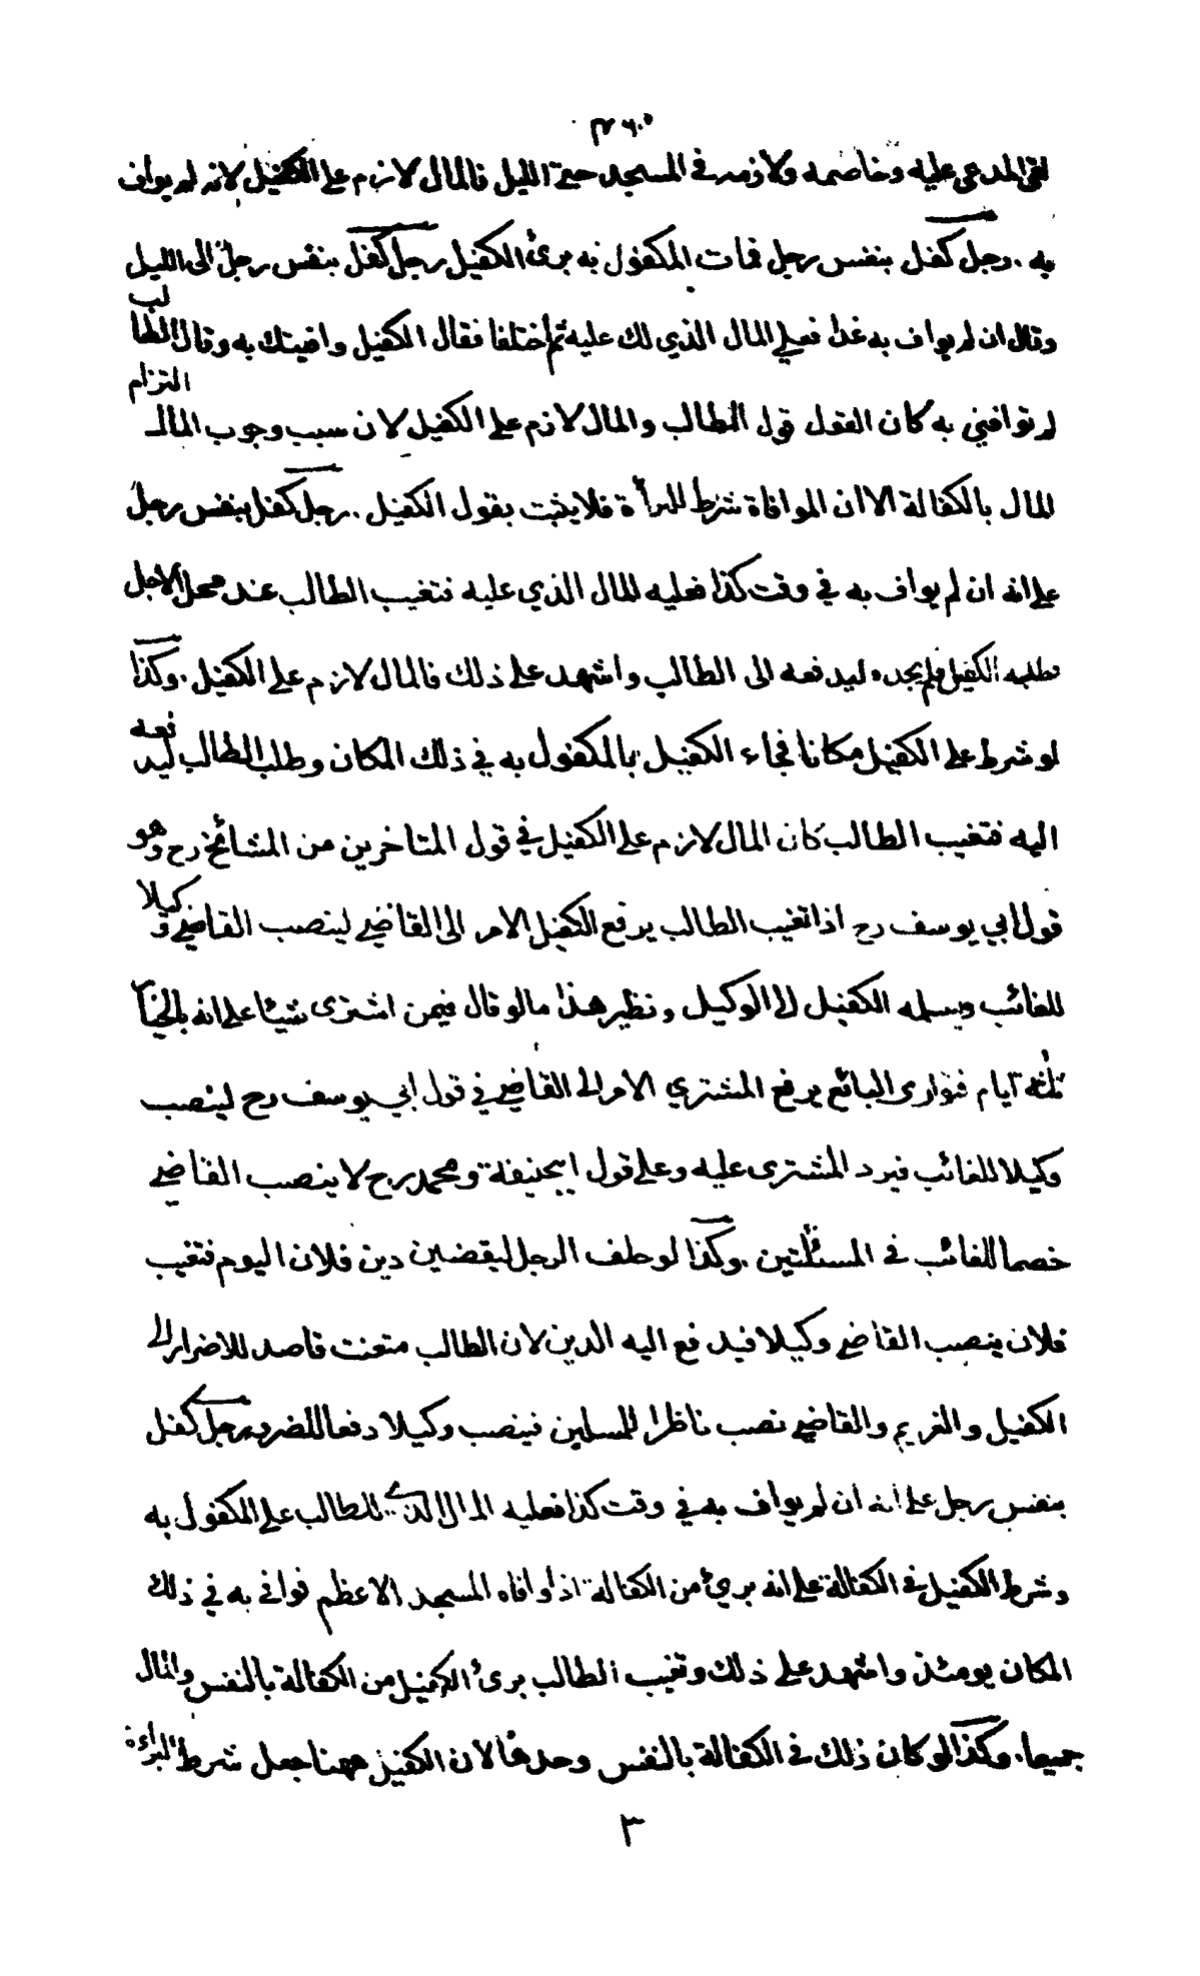 لقي المدعى عليه وخاصمه ولازمه في المسجد حتى الليل فالمال لازم على الكفيل لانه لم يواف
به . رجل كفل بنفس رجل فمات المكفول به برئ الكفيل رجل كفل بنفس رجل الى الليل
وقال ان لم يواف به غدا فعلي المال الذي لك عليه ثم اختلفا فقال الكفيل وافيتك به وقال الطالب
لم توافني به كان القول قول الطالب والمال لازم على الكفيل لان سبب وجوب المال التزام
المال بالكفالة الا ان الموافاة شرط للبرأة فلا يثبت بقول الكفيل . رجل كفل بنفس رجل
على انه ان لم يواف به في وقت كذا فعليه المال الذي عليه فتغيب الطالب عند محل الاجل
فطلبه الكفيل فلم يجده ليدفعه الى الطالب واشهد على ذلك فالمال لازم على الكفيل . وكذا
لو شرط على الكفيل مكانا فجاء الكفيل بالمكفول به في ذلك المكان وطلب الطالب ليدفعه
اليه فتغيب الطالب كان المال لازم على الكفيل في قول المتاخرين من المشائخ رح وهو
قول ابي يوسف رح اذا تغيب الطالب يرفع الكفيل الامر الى القاضي لينصب القاضي وكيلا
للغائب ويسلمه الكفيل الى الوكيل ونظير هذا ما لو قال فيمن اشترى شيئا على انه بالخيا
ثلثة ايام فتوارى البائع يرفع المشتري الامر الى القاضي في قول ابي يوسف رح لينصب
وكيلا للغائب فيرد المشترى عليه وعلى قول ابيحنيفة ومحمد رح لا ينصب القاضي
خصما للغائب في المسئلتين . وكذا لو حلف الرجل ليقضين دين فلان اليوم فتغيب
فلان ينصب القاضي وكيلا فيدفع اليه الدين لان الطالب متعنت قاصد للاضرار الى
الكفيل والغريم والقاضي نصب ناظرا للمسلمين فينصب وكيلا دفعا للضرر . رجل كفل
بنفس رجل على انه ان لم يواف به في وقت كذا فعليه المال الذي للطالب على المكفول به
وشرط الكفيل في الكفالة على انه بريئ من الكفالة اذا وافاه المسجد الاعظم فوافى به في ذلك
المكان يومئذ واشهد على ذلك وتغيب الطالب برئ الكفيل من الكفالة بالنفس والمال
جميعا . وكذا لو كان ذلك في الكفالة بالنفس وحدها لان الكفيل ههنا جعل شرط البراءة
٣